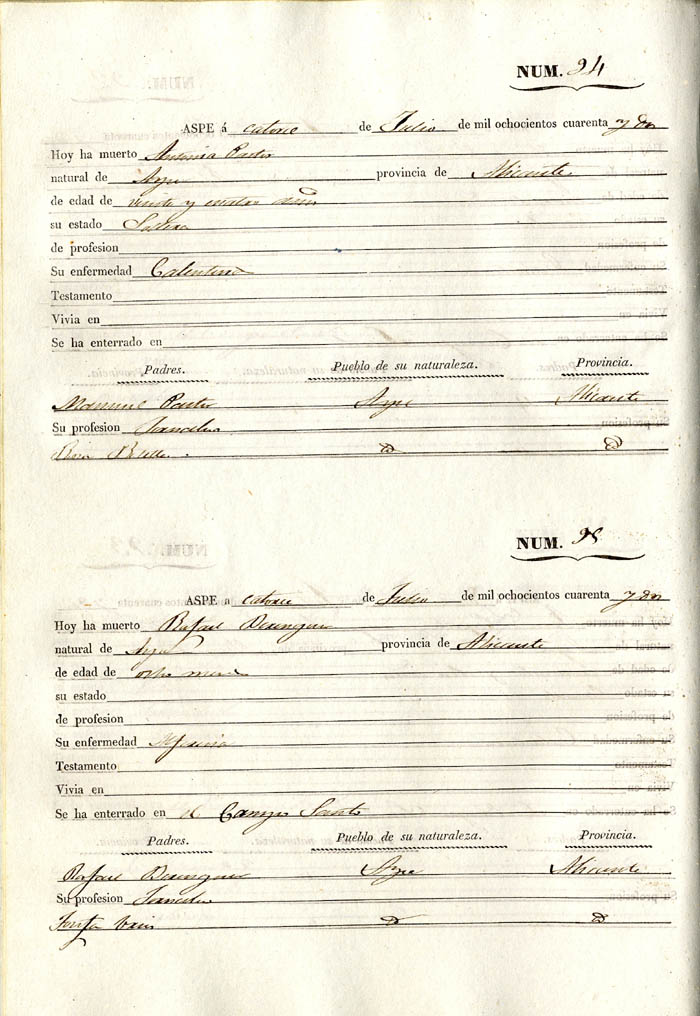 NUM. 94
ASPE á catorce de Julio de mil ochocientos cuarenta y dos
Hoy ha muerto Antonia Pastor
natural de Aspe provincia de Alicante
de edad de veinte y cuatro años
su estado Soltera
de profesion
Su enfermedad Calentura
Testamento
Vivia en
Se ha enterrado en
Padres. Pueblo de su naturaleza. Provincia.
Manuel Pastor Aspe Alicante
Su profesion Jornalero
NUM. 95
ASPE a catorce de Julio de mil ochocientos cuarenta y dos
Hoy ha muerto Rafael Berenguer
natural de Aspe provincia de Alicante
de edad de ocho meses
su estado
de profesion
Su enfermedad
Testamento
Vivia en
Se ha enterrado en el Campo Santo
Padres. Pueblo de su naturaleza. Provincia.
Rafael Berenguer Aspe Alicante
Su profesion Jornalero